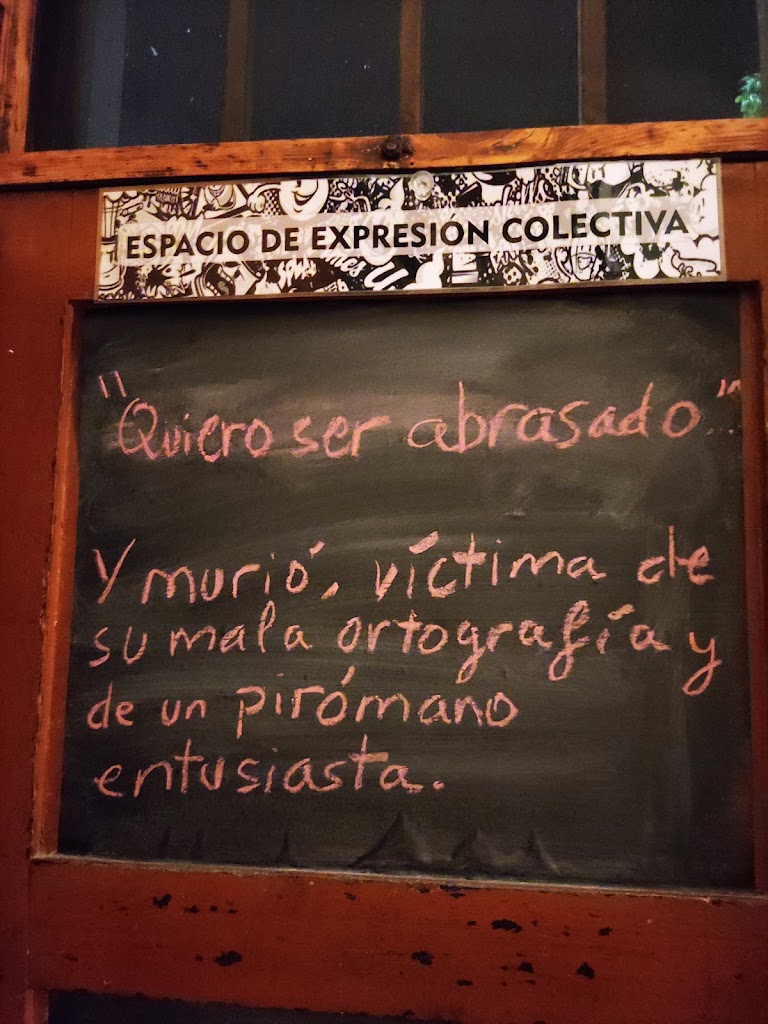 ESPACIO DE EXPRESIÓN COLECTIVA
"Quiero ser abrasado"
Y murió, víctima de
su mala ortografía y
de un pirómano
entusiasta.